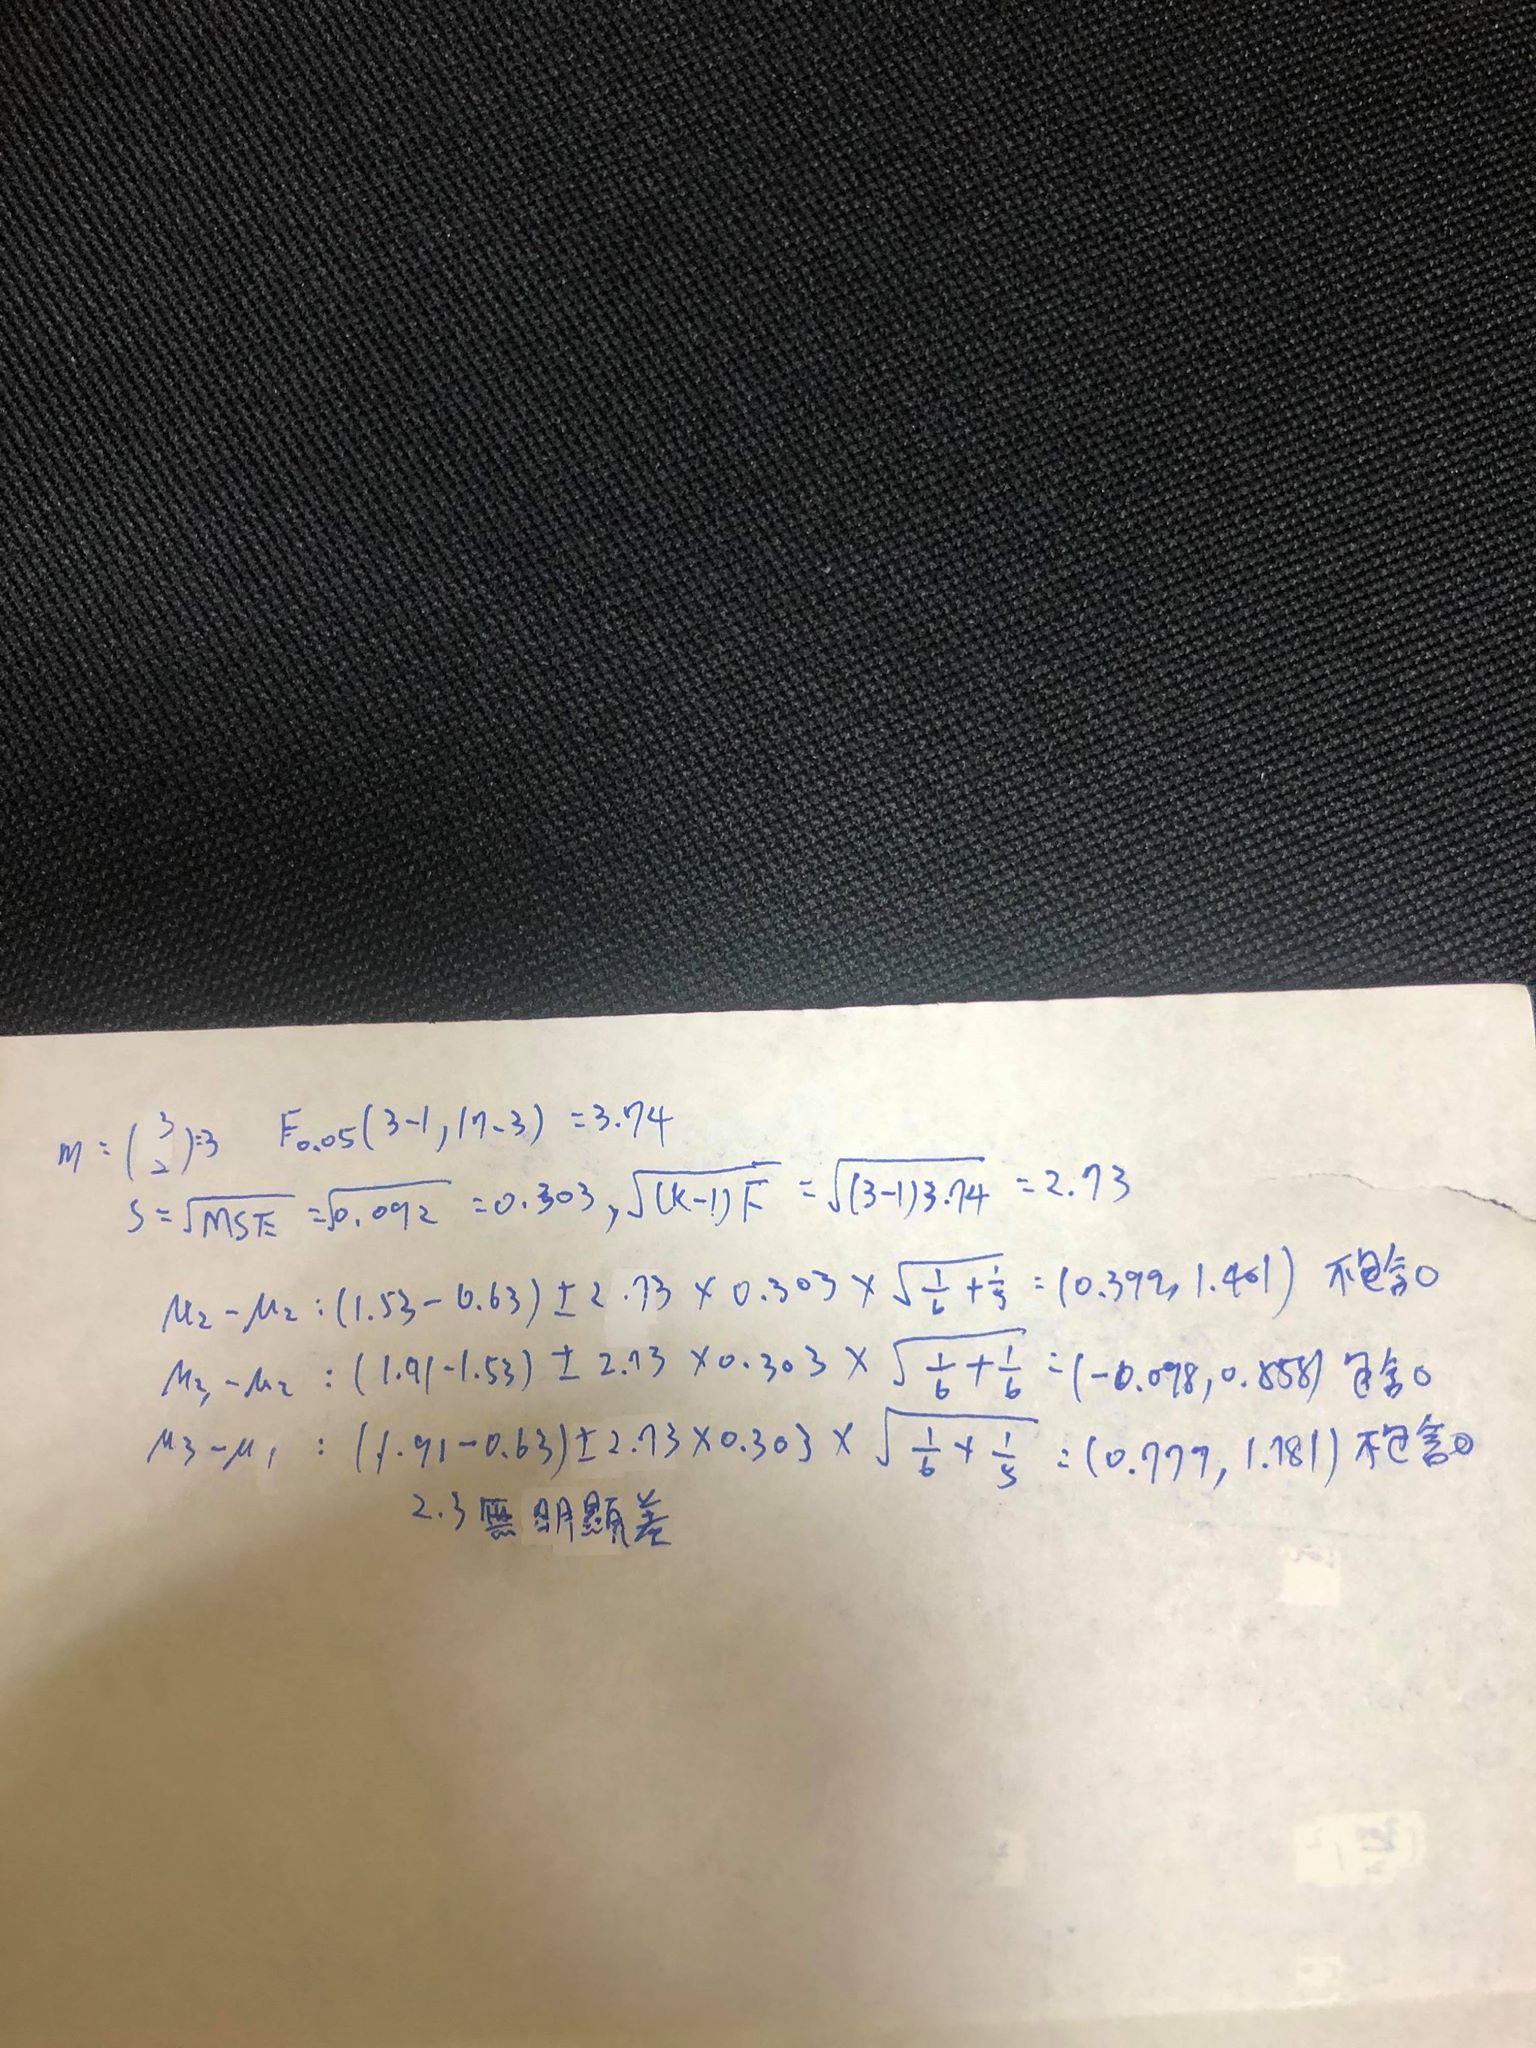 m = (3 2) = 3 F0.05(3-1, 17-3) = 3.74
S = √MSE = √0.092 = 0.303, √(k-1)F = √(3-1)3.74 = 2.73
μ2 - μ2 : (1.53 - 0.63) ± 2.73 × 0.303 × √1/6 + 1/5 = (0.399, 1.401) 不包含0
μ3 - μ2 : (1.91 - 1.53) ± 2.73 × 0.303 × √1/6 + 1/6 = (-0.098, 0.858) 包含0
μ3 - μ1 : (1.91 - 0.63) ± 2.73 × 0.303 × √1/6 + 1/5 = (0.779, 1.781) 不包含0
2.3 無明顯差